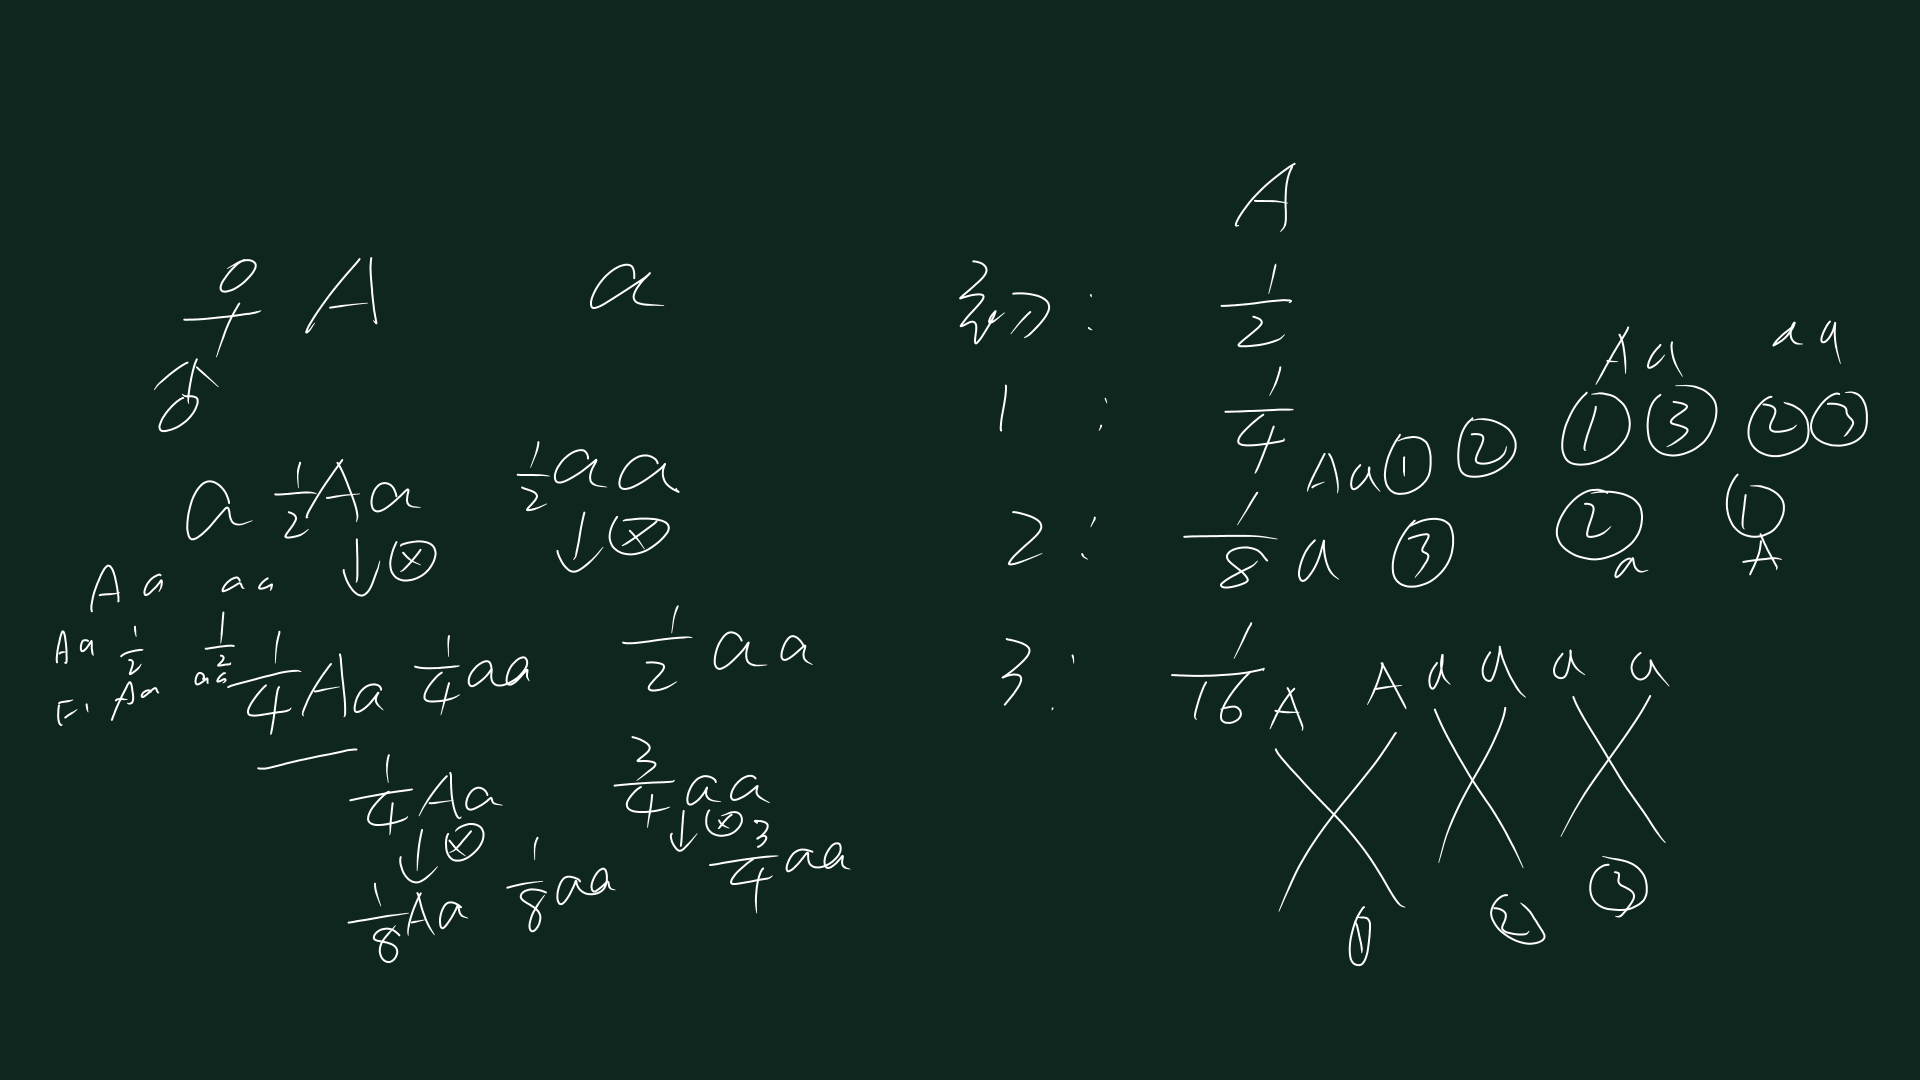 ♀ A a
♂
a 1/2 Aa 1/2 aa
↓⊗ ↓⊗
A a a a
Aa 1/2 1/2 aa
F1 Aa
1/4 Aa 1/4 aa 1/2 aa
1/4 Aa 3/4 aa
↓⊗ ↓⊗
1/8 Aa 1/8 aa 3/4 aa
A
初: 1/2
1: 1/4
2: 1/8
3: 1/16
Aa aa
① ③ ② ③
Aa ① ②
a ③
② ①
a A
A A a a a a
① ② ③